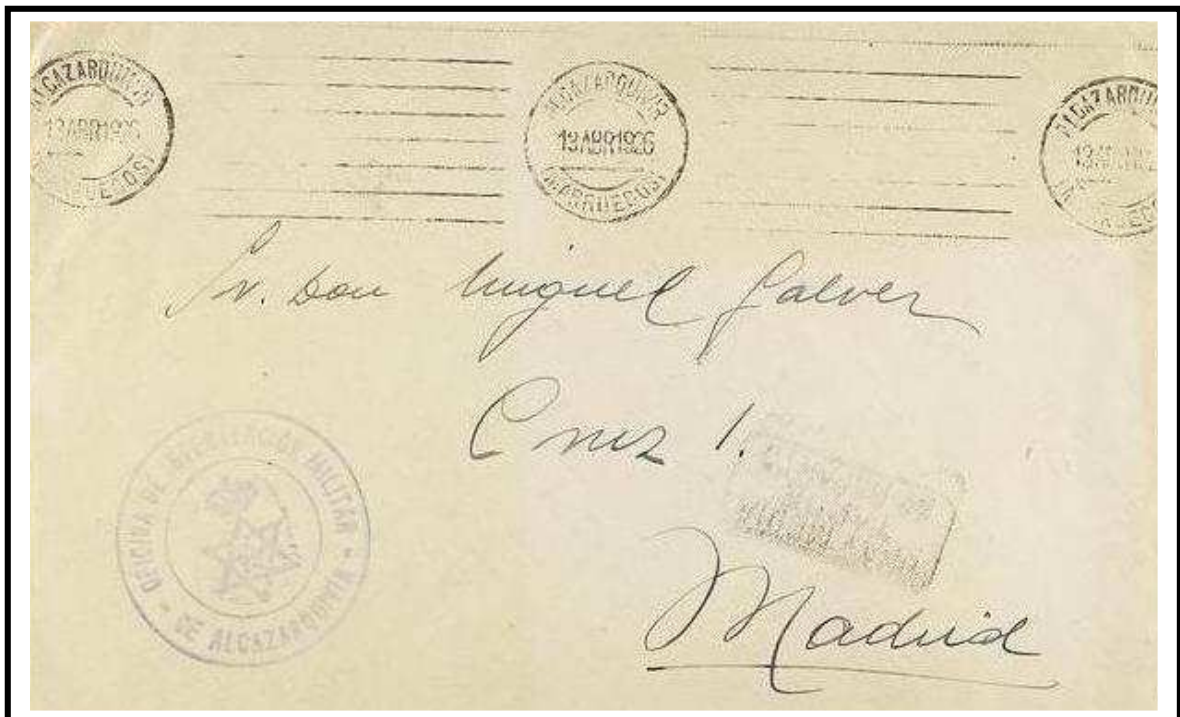 ALCAZARQUIVIR
13 ABR 1926
(MARRUECOS)
ALCAZARQUIVIR
13 ABR 1926
(MARRUECOS)
ALCAZARQUIVIR
Sr. Don Miguel Galvez
Cruz 1.
Madrid
OFICINA DE INTERVENCIÓN MILITAR
DE ALCAZARQUIVIR